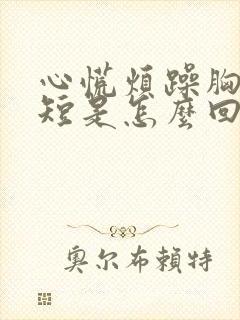 心慌煩躁胸
短是怎麼回
奧尔布賴特